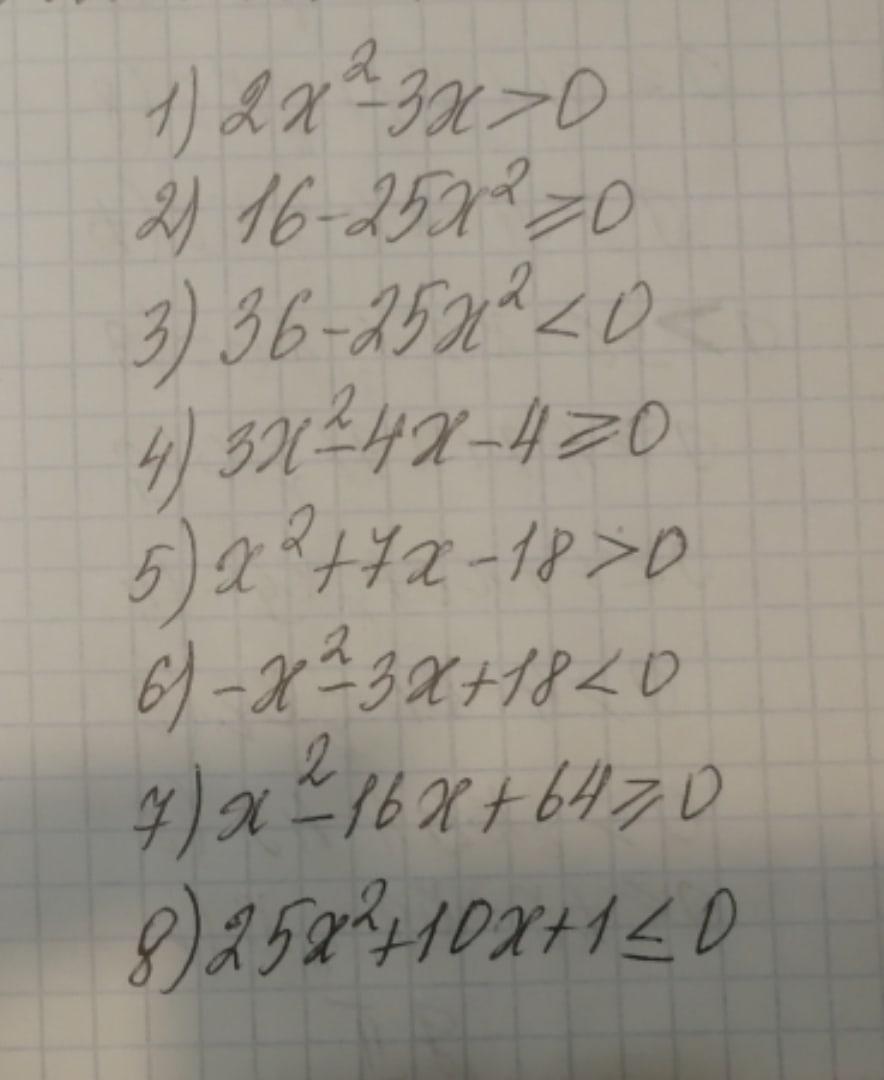 1) 2x²-3x>0
2) 16-25x²⩾0
3) 36-25x²<0
4) 3x²-4x-4⩾0
5) x²+7x-18>0
6) -x²-3x+18<0
7) x²-16x+64⩾0
8) 25x²+10x+1≤0